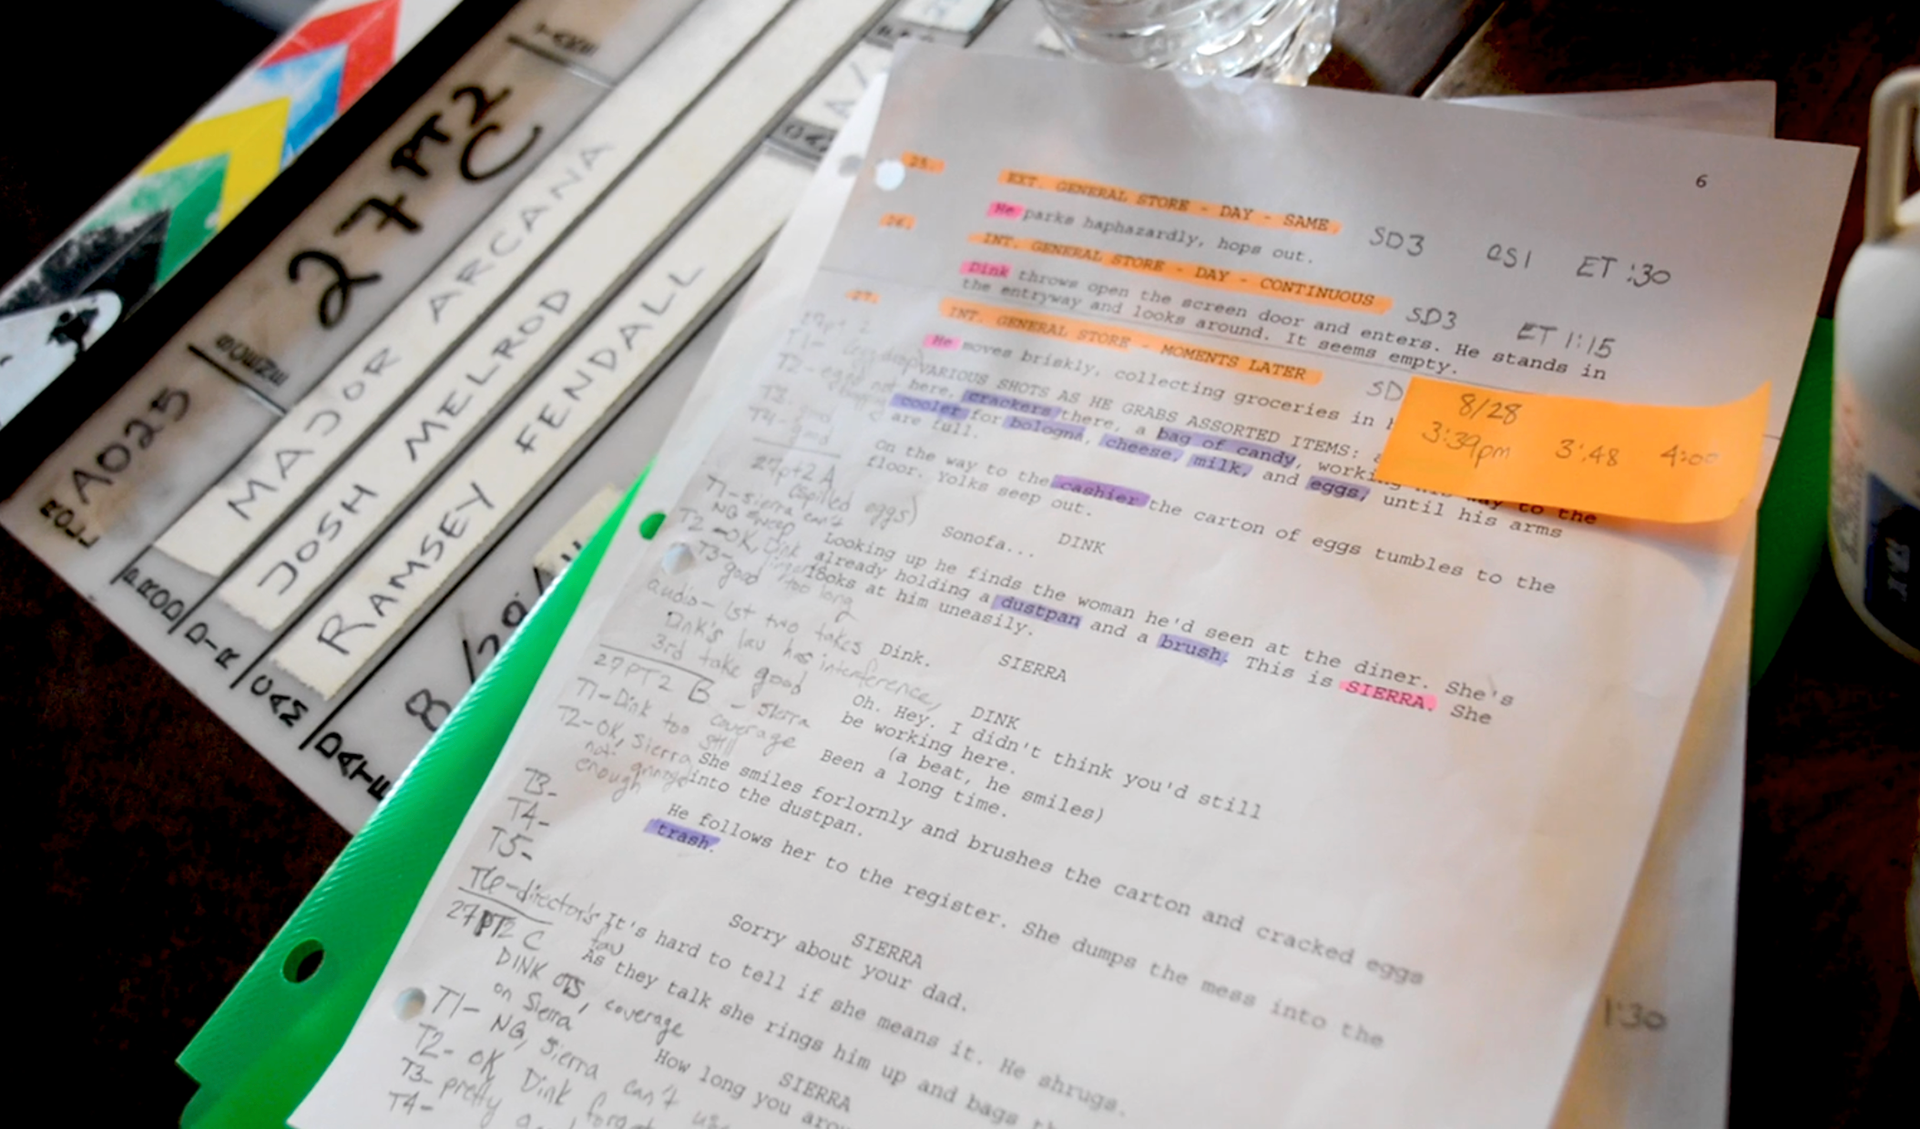 TAKE
27 PT2
C
SCENE
A025
PROD
MAJOR ARCANA
DIR
JOSH MELROD
CAM
RAMSEY FENDALL
DATE
6
25.
EXT. GENERAL STORE - DAY - SAME
SD3 ET :30
He parks haphazardly, hops out.
26.
INT. GENERAL STORE - DAY - CONTINUOUS
SD3 ET 1:15
Dink throws open the screen door and enters. He stands in
the entryway and looks around. It seems empty.
27.
INT. GENERAL STORE - MOMENTS LATER
SD
He moves briskly, collecting groceries in
8/28
3:39pm 3:48 4:00
VARIOUS SHOTS AS HE GRABS ASSORTED ITEMS:
here, crackers there, a bag of candy, working his way to the
cooler for bologna, cheese, milk, and eggs, until his arms
are full.
On the way to the cashier the carton of eggs tumbles to the
floor. Yolks seep out.
DINK
Sonofa...
Looking up he finds the woman he'd seen at the diner. She's
already holding a dustpan and a brush. This is SIERRA. She
looks at him uneasily.
SIERRA
Dink.
DINK
Oh. Hey. I didn't think you'd still
be working here.
(a beat, he smiles)
Been a long time.
She smiles forlornly and brushes the carton and cracked eggs
into the dustpan.
He follows her to the register. She dumps the mess into the
trash.
SIERRA
Sorry about your dad.
It's hard to tell if she means it. He shrugs.
As they talk she rings him up and bags
SIERRA
How long you
27pt 2
T1-
T2-
T3-
T4- good
27pt2 A
(spilled eggs)
T1- sierra can't
NG sweep
T2-OK, Dink
T3- looks too long
good
audio- 1st two takes
Dink's lav has interference,
3rd take good
27PT2 B - Sierra
coverage
T1- Dink too still
T2-OK, Sierra
not
enough
T3-
T4-
T5-
T6- director's
fav
27PT2 C
DINK OTS, coverage
on Sierra
T1- NG, Sierra can't
T2- OK Dink
T3- pretty
T4-
1:30